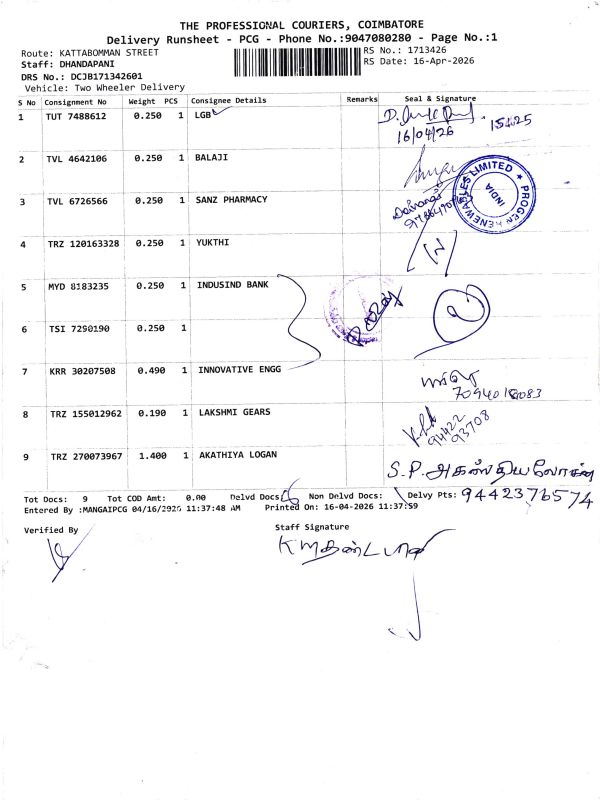 THE PROFESSIONAL COURIERS, COIMBATORE
Delivery Runsheet - PCG - Phone No.:9047080280 - Page No.:1
Route: KATTABOMMAN STREET RS No.: 1713426
Staff: DHANDAPANI RS Date: 16-Apr-2026
DRS No.: DCJB171342601
Vehicle: Two Wheeler Delivery
S No Consignment No Weight PCS Consignee Details Remarks Seal & Signature
1 TUT 7488612 0.250 1 LGB
16/04/26
2 TVL 4642106 0.250 1 BALAJI
PROGEN RENEWABLES LIMITED ★ INDIA
3 TVL 6726566 0.250 1 SANZ PHARMACY
4 TRZ 120163328 0.250 1 YUKTHI
5 MYD 8183235 0.250 1 INDUSIND BANK
6 TSI 7290190 0.250 1
7 KRR 30207508 0.490 1 INNOVATIVE ENGG
8 TRZ 155012962 0.190 1 LAKSHMI GEARS
94422
93708
9 TRZ 270073967 1.400 1 AKATHIYA LOGAN
S.P. அகஸ்தியலோகன்
Tot Docs: 9 Tot COD Amt: 0.00 Delvd Docs: Non Delvd Docs: Delvy Pts: 9442376574
Entered By :MANGAIPCG 04/16/2026 11:37:48 AM Printed On: 16-04-2026 11:37:59
Verified By Staff Signature